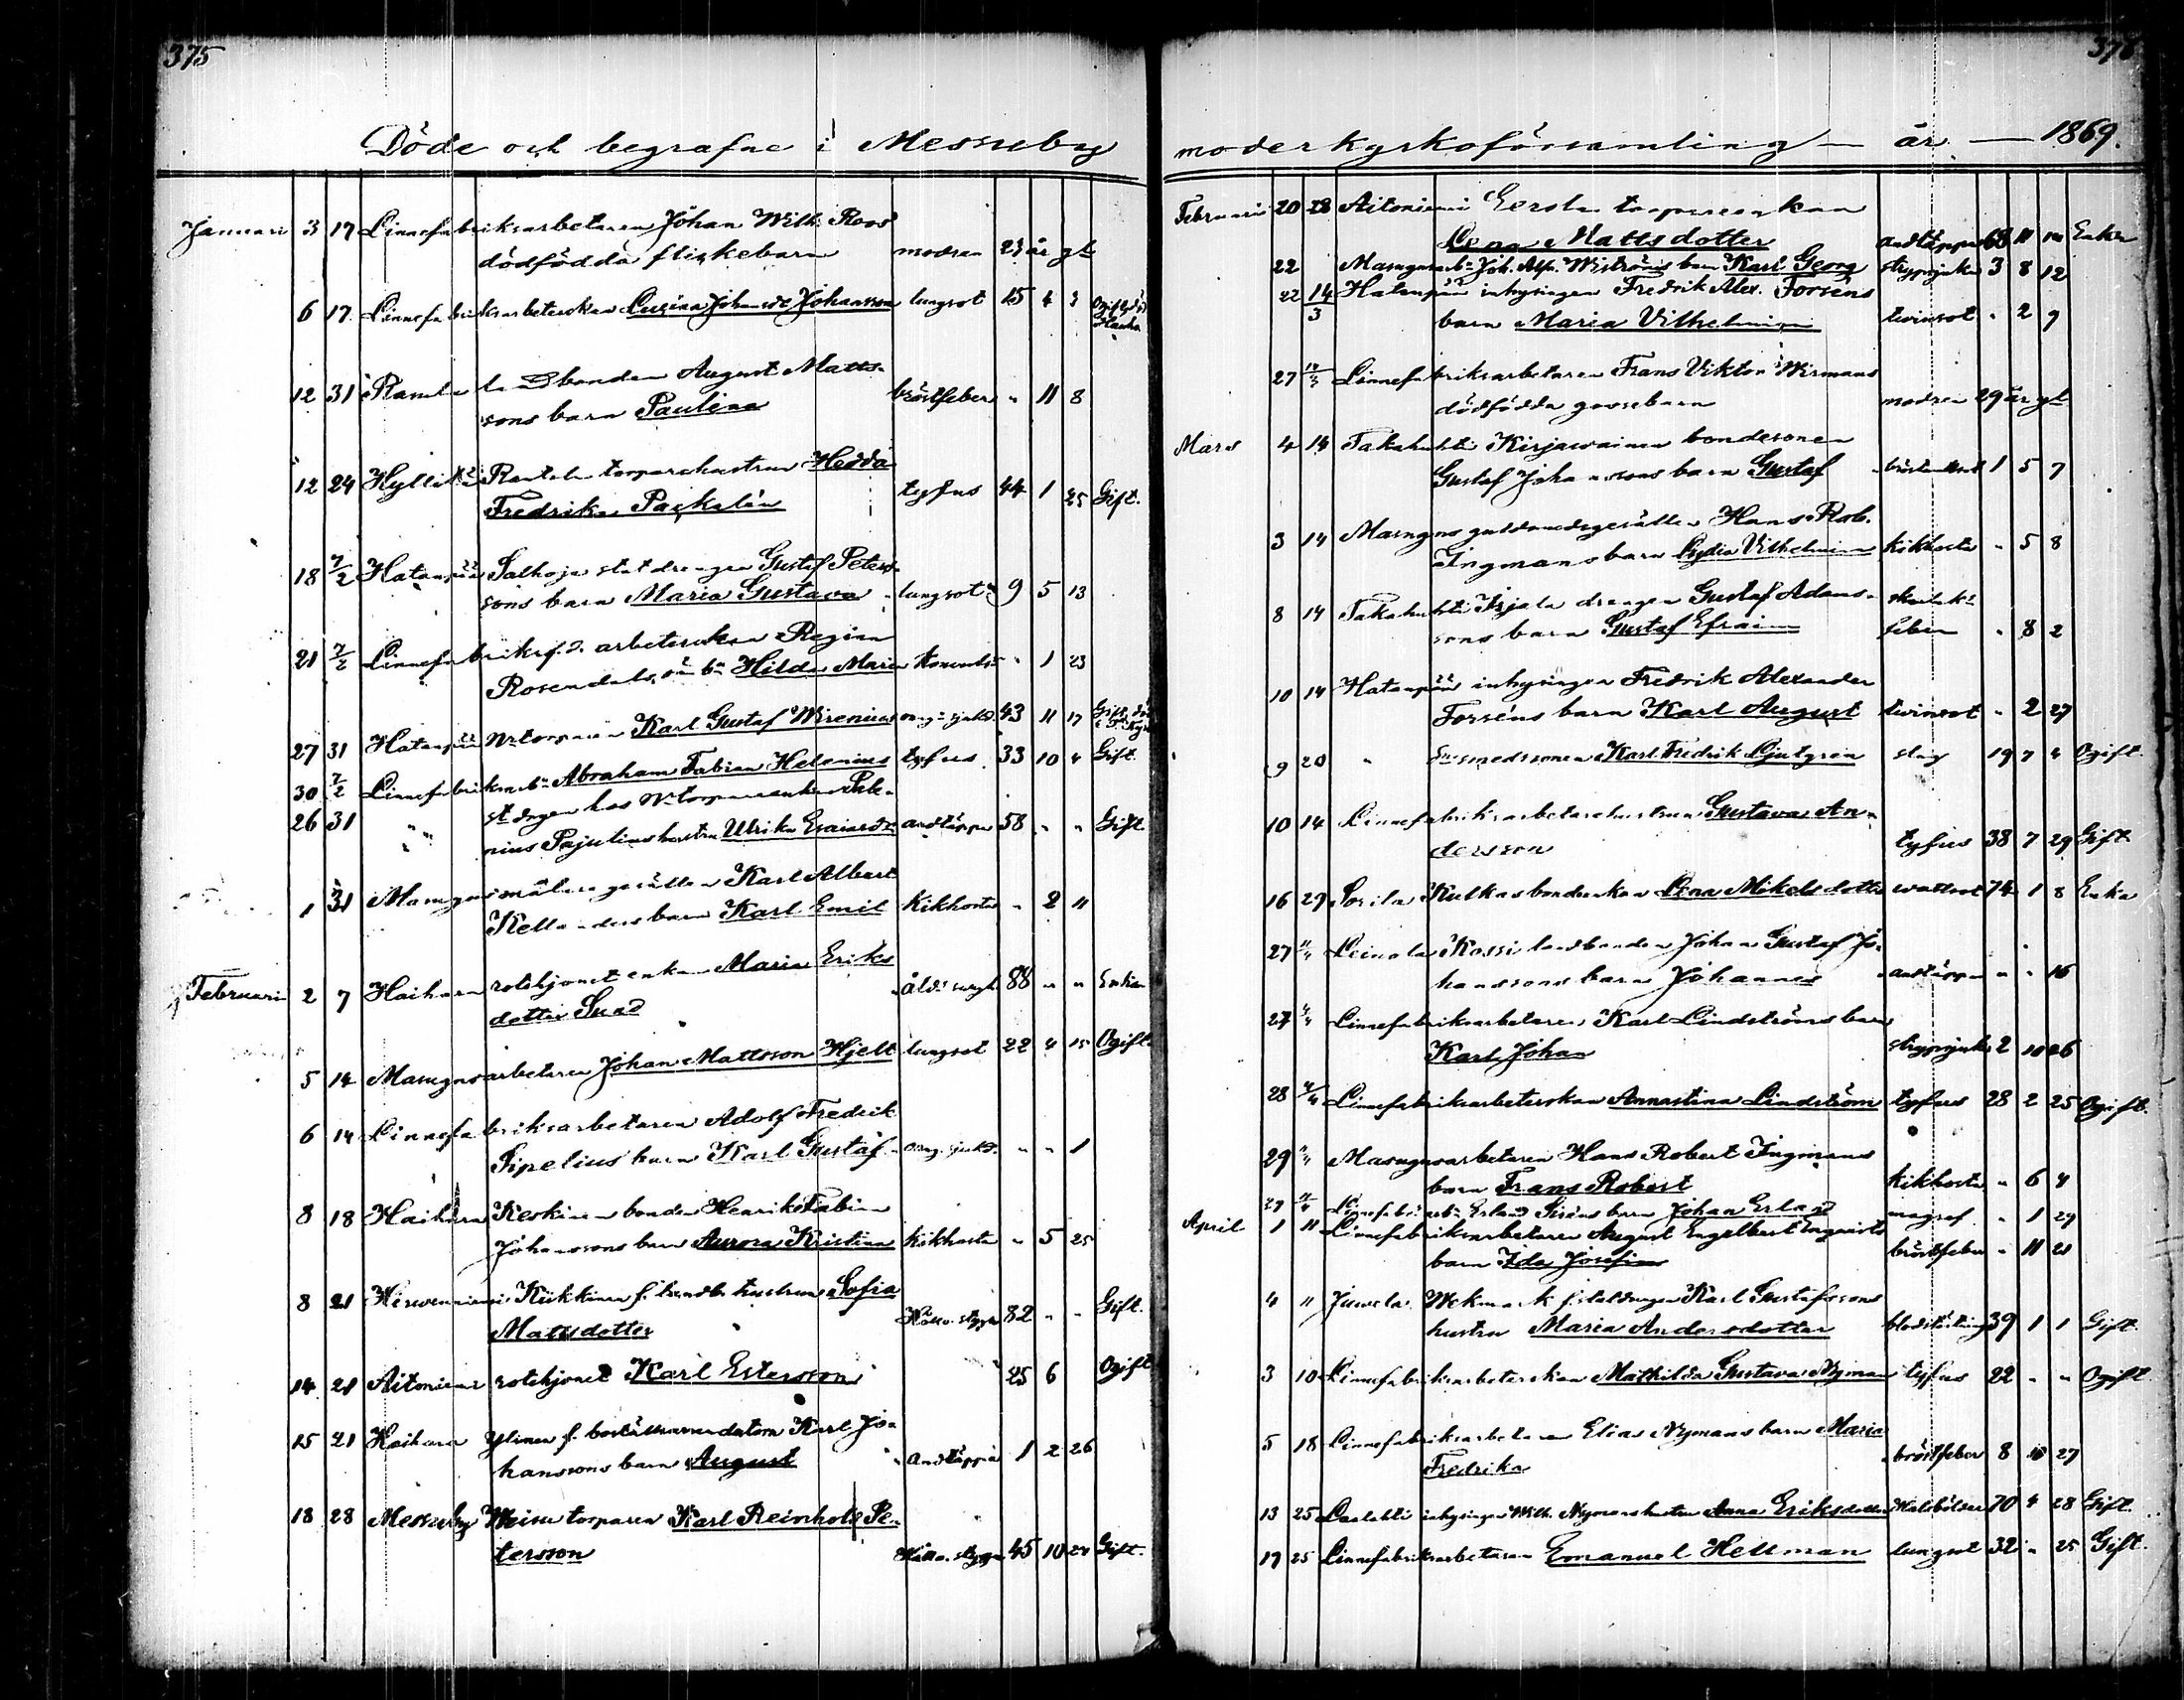 375
Döde och begrafne i Messuby
Januari 3 17 Linnefabriksarbetaren Johan Wilh. Roos
dödfödda flickebarn modren 23 år gl
6 17 Linnefabriksarbeterskan Lovisa Johansdr Johansson lungsot 15 4 3 Ogift
12 31 bonden August Matts-
sons barn Paulina bröstfeber " 11 8
12 24 Hyllilä Rantala torparehustrun Hedda
Fredrika Packalén tyfus 44 1 25 Gift.
18 7/2 Hatanpää Salhoja statdrengen Gustaf Peters-
sons barn Maria Gustava lungsot 9 5 13
21 7/2 Linnefabriks f.d. arbeterskan Regina
Rosendals oä bn Hilda Maria " 1 23
27 31 Hatanpää torparen Karl Gustaf Wirenius 43 11 17
30 7/2 Linnefabriksarbn Abraham Fabian Helenius tyfus 33 10 4 Gift
26 31 " "
hustru Ulrika Esaiasdr andtäppa 58 " " Gift
1 31 Masugns målaregesällen Karl Albert
barn Karl Emil Kikhosta " 2 11
Februari 2 7 Haihara rotehjonet enkan Maria Eriks
dotter 88 " " Enka
5 14 Masugnsarbetaren Johan Mattsson Hjelt lungsot 22 4 15 Ogift
6 14 Linnefabriksarbetaren Adolf Fredrik
Sipelius barn Karl Gustaf " " 1
8 18 Haihara Keskinen bonden Henrik Fabian
Johanssons barn Aurora Kristina Kikhosta " 5 25
8 21 Kiikkinen hustrun Sofia
Mattsdotter Håll o. stygn 82 " " Gift.
14 21 Aitoniemi rotehjonet Karl Estersson 25 6 Ogift
15 21 Haihara Ylinen f. Karl Jo-
hanssons barn August Andtäppa 1 2 26
18 28 Messuby torparen Karl Reinhold Pe-
tersson Håll o. stygn 45 10 24 Gift.
376
moderkyrkoförsamling — år — 1869.
Februari 20 28 Aitoniemi Eerola torpareenkan
Lena Mattsdotter andtäppa 68 11 Enka
22 Masugnsarbn Joh. Alfr. Wiströms barn Karl Georg strypsjuka 3 8 12
22 14/3 Hatanpää inhysingen Fredrik Alex. Forséns
barn Maria Vilhelmina twinsot " 2 9
27 14/3 Linnefabriksarbetaren Frans Viktor Wirmans
dödfödda gossebarn modren 29 år gl
Mars 4 14 Takahuhti Kirjavainen bondesonen
Gustaf Johanssons barn Gustaf 1 5 7
3 14 Masugns guldsmedsgesällen Hans Rob.
Ingmans barn Lydia Vilhelmina kikhosta " 5 8
8 14 Takahuhti drengen Gustaf Adams-
sons barn Gustaf Efraim feber " 8 2
10 14 Hatanpää inhysingen Fredrik Alexander
Forséns barn Karl August twinsot " 2 27
9 20 " smedssonen Karl Fredrik slag 19 7 4 Ogift.
10 14 Linnefabriksarbetarehustrun Gustava An-
dersson tyfus 38 7 29 Gift
16 29 Sorila Kulkas bondenkan Lena Mikelsdotter 74 1 8 Enka
27 Leinola Kossi landbonden Johan Gustaf Jo-
hanssons barn Johannes andtäppa " " 16
27 Linnefabriksarbetaren Karl Lindströms barn
Karl Johan strypsjuka 2 10 26
28 Linnefabriksarbeterskan Annastina Lindström tyfus 28 2 25 Ogift.
29 Masugnsarbetaren Hans Robert Ingmans
barn Frans Robert kikhosta " 6 4
Linnefabr. arbn Erland Siréns barn Johan Erland magref " 1 29
April 1 11 Linnefabriksarbetaren August Engelbert Enqvists
barn Ida Josefina bröstfeber " 11 21
4 11 Juvela f. statdrengen Karl Gustafssons
hustru Maria Andersdotter blodstörtning 39 1 1 Gift
3 10 Linnefabriksarbeterskan Mathilda Gustava Nyman tyfus 22 " " Ogift
5 18 Linnefabriksarbetaren Elias Nymans barn Maria
Fredrika bröstfeber 8 10 27
13 25 inhysingen Wilh. Nymans hustru Anna Eriksdotter 70 4 28 Gift.
17 25 Linnefabriksarbetaren Emanuel Hellman lungsot 32 " 25 Gift.